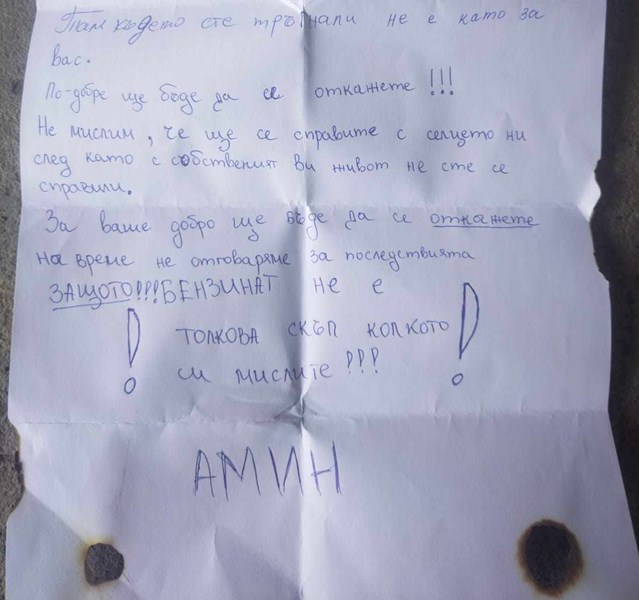 Там където сте тръгнали не е като за
вас.
По-добре ще бъде да се откажете !!!
Не мислим, че ще се справите с селцето ни
след като с собственият ви живот не сте се
справили.
За ваше добро ще бъде да се откажете
на време не отговаряме за последствията
ЗАЩОТО!!! БЕНЗИНАТ не е
! ТОЛКОВА СКЪП КОЛКОТО !
си мислите !!!
АМИН